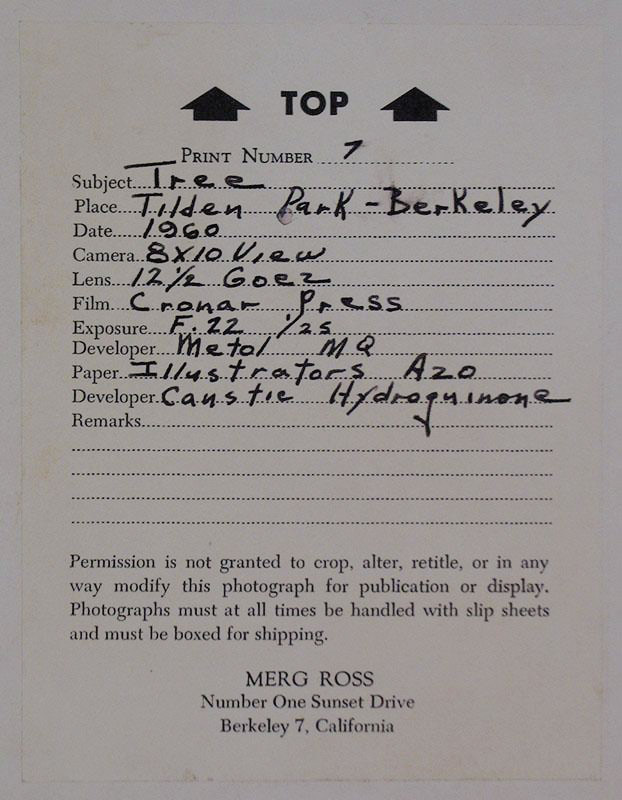 TOP
PRINT NUMBER 7
Subject Tree
Place Tilden Park - Berkeley
Date 1960
Camera 8X10 View
Lens 12 1/2 Goez
Film Cronar Press
Exposure F.22 1/25
Developer Metol MQ
Paper Illustrators Azo
Developer Caustic Hydroquinone
Remarks
Permission is not granted to crop, alter, retitle, or in any
way modify this photograph for publication or display.
Photographs must at all times be handled with slip sheets
and must be boxed for shipping.
MERG ROSS
Number One Sunset Drive
Berkeley 7, California